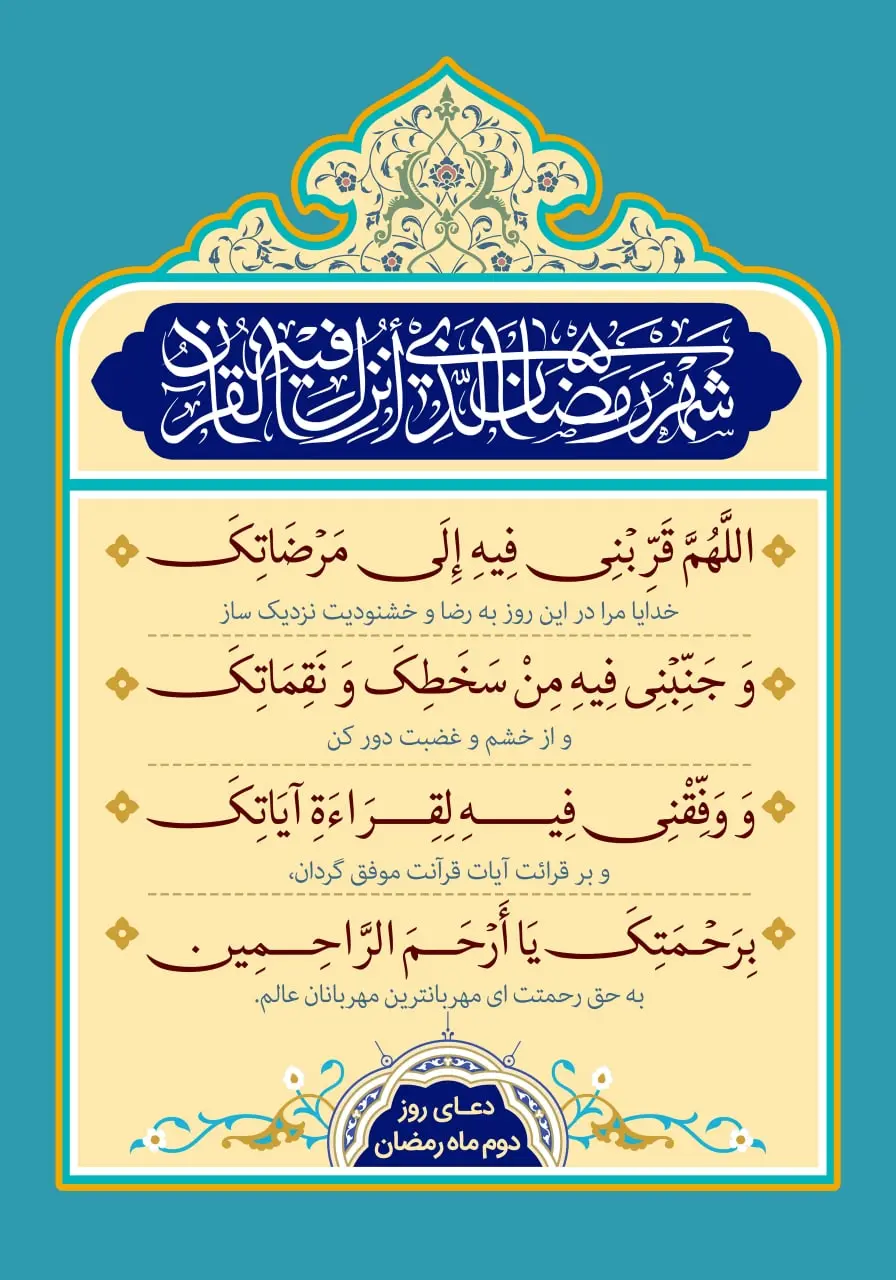 شَهْرُ رَمَضَانَ الَّذِي أُنْزِلَ فِيهِ الْقُرْآنُ
اللَّهُمَّ قَرِّبْنِی فِيهِ إِلَی مَرْضَاتِکَ
خدایا مرا در این روز به رضا و خشنودیت نزدیک ساز
وَ جَنِّبْنِی فِيهِ مِنْ سَخَطِکَ وَ نَقِمَاتِکَ
و از خشم و غضبت دور کن
وَ وَفِّقْنِی فِيهِ لِقِرَاءَةِ آيَاتِکَ
و بر قرائت آیات قرآنت موفق گردان،
بِرَحْمَتِکَ يَا أَرْحَمَ الرَّاحِمِين
به حق رحمتت ای مهربانترین مهربانان عالم.
دعای روز
دوم ماه رمضان